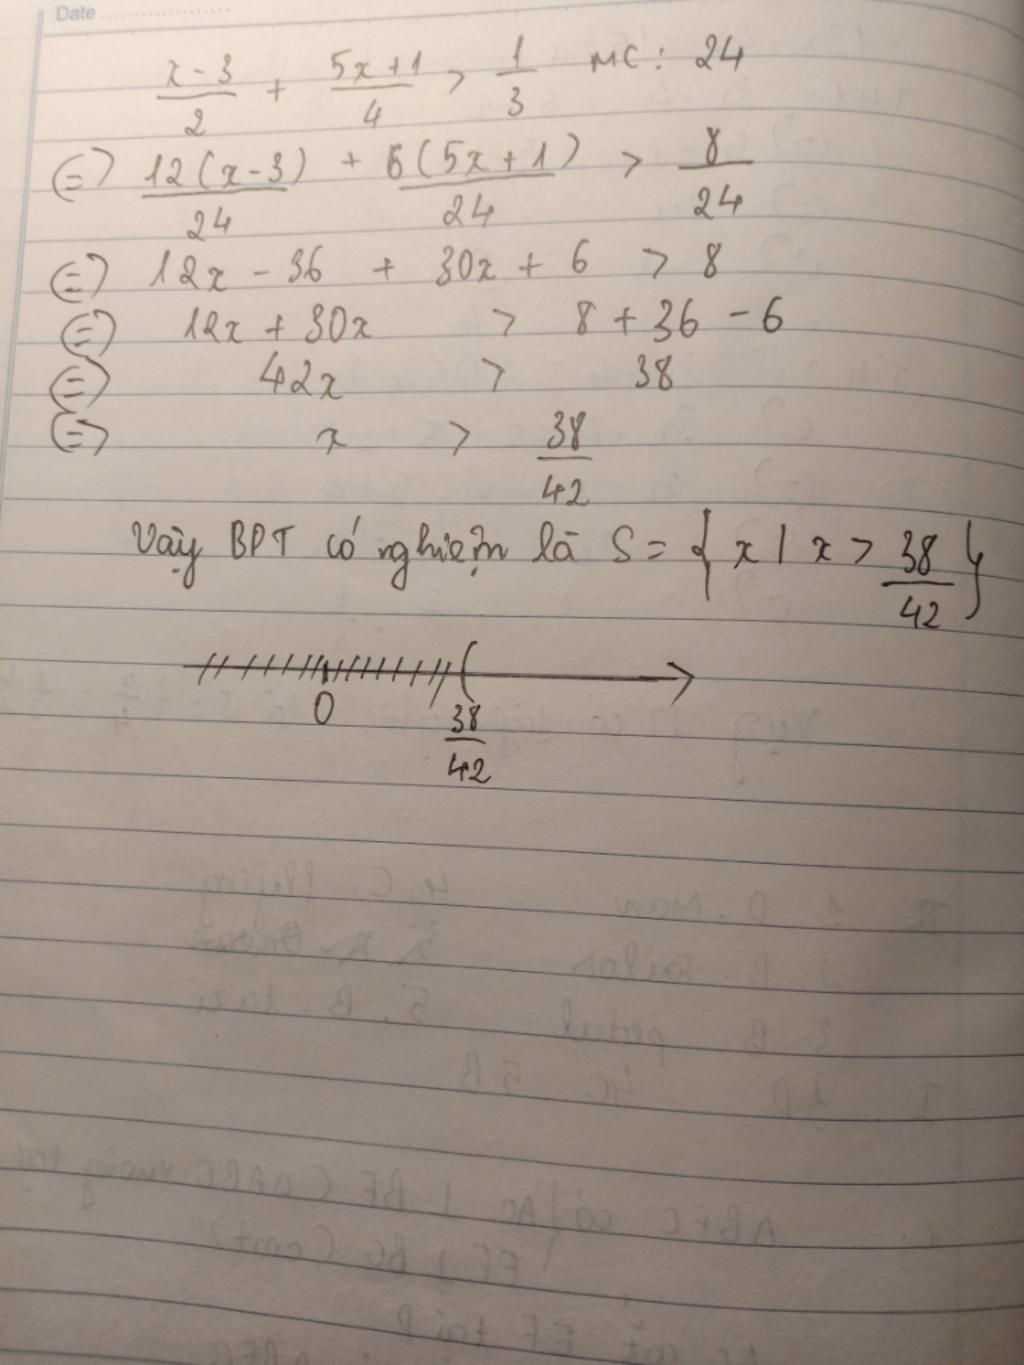 Date
x-3/2 + 5x+1/4 > 1/3 MC: 24
(=) 12(x-3)/24 + 6(5x+1)/24 > 8/24
(=) 12x - 36 + 30x + 6 > 8
(=) 12x + 30x > 8 + 36 - 6
(=) 42x > 38
(=) x > 38/42
Vậy BPT có nghiệm là S = { x | x > 38/42 }
0 38/42